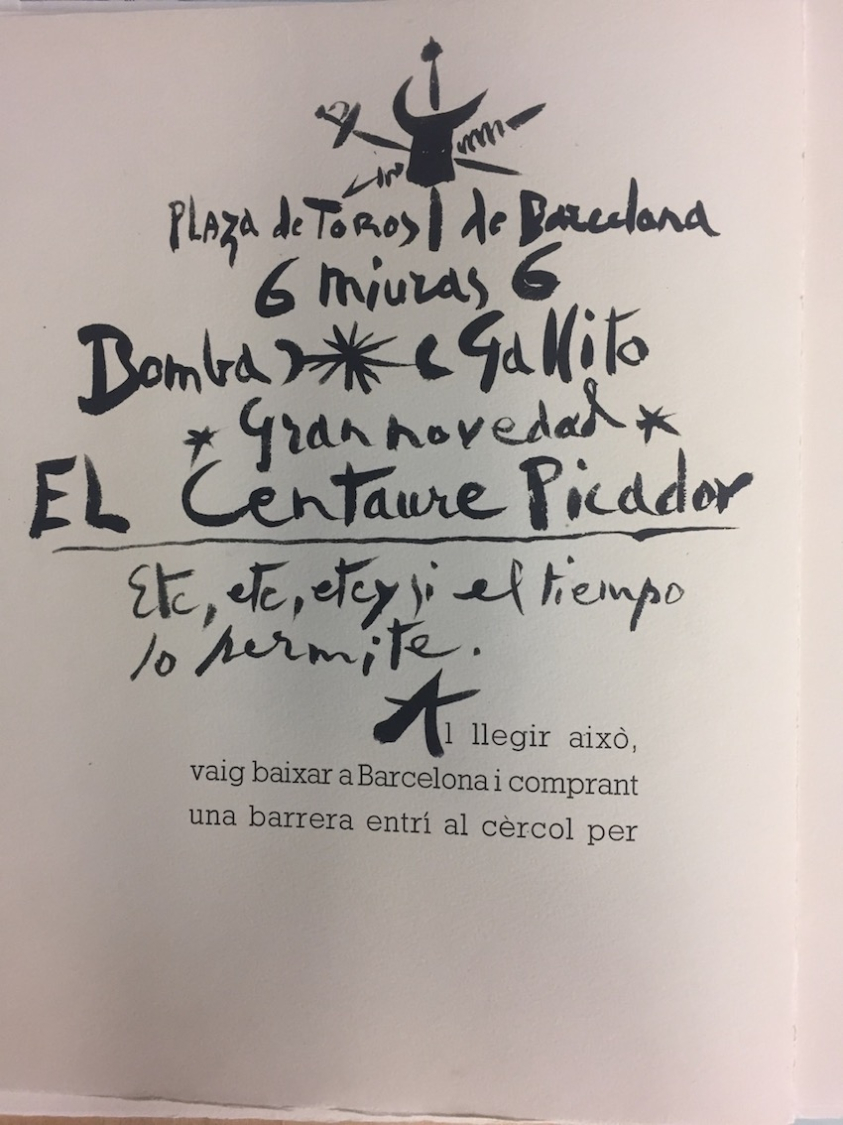 PLAZA de TOROS de Barcelona
6 miuras 6
Bomba e Gallito
Gran novedad
EL Centaure Picador
Etc, etc, etc y si el tiempo
lo permite.
Al llegir això,
vaig baixar a Barcelona i comprant
una barrera entrí al cèrcol per